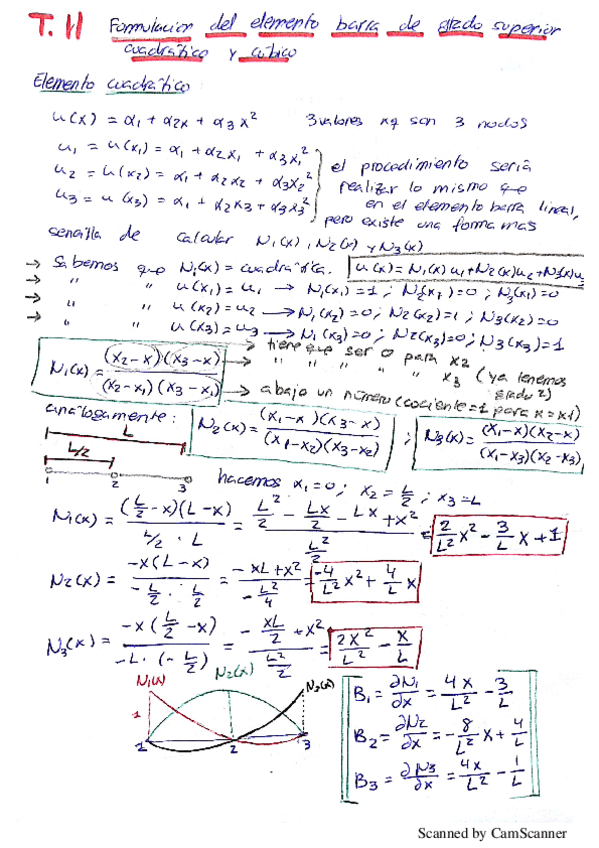 T. 11 Formulacion del elemento barra de grado superior
cuadrático y cúbico
Elemento cuadrático:
u(x) = α₁ + α₂x + α₃x² 3 valores xq son 3 nodos
u₁ = u(x₁) = α₁ + α₂x₁ + α₃x₁²
u₂ = u(x₂) = α₁ + α₂x₂ + α₃x₂²
u₃ = u(x₃) = α₁ + α₂x₃ + α₃x₃²
el procedimiento sería
realizar lo mismo que
en el elemento barra lineal,
pero existe una forma mas
sencilla de calcular N₁(x), N₂(x) y N₃(x)
→ Sabemos que Nᵢ(x) = cuadrática. u(x) = N₁(x)u₁ + N₂(x)u₂ + N₃(x)u₃
→ " " u(x₁) = u₁ → N₁(x₁) = 1; N₂(x₁) = 0; N₃(x₁) = 0
→ " " u(x₂) = u₂ → N₁(x₂) = 0; N₂(x₂) = 1; N₃(x₂) = 0
→ " " u(x₃) = u₃ → N₁(x₃) = 0; N₂(x₃) = 0; N₃(x₃) = 1
N₁(x) = (x₂-x)(x₃-x) / (x₂-x₁)(x₃-x₁)
→ tiene que ser 0 para x₂
→ " " " " " x₃ (ya tenemos
grado 2)
→ abajo un número (cociente = 1 para x = x₁)
análogamente: N₂(x) = (x₁-x)(x₃-x) / (x₁-x₂)(x₃-x₂) ; N₃(x) = (x₁-x)(x₂-x) / (x₁-x₃)(x₂-x₃)
L
L/2
1 2 3
hacemos x₁ = 0; x₂ = L/2; x₃ = L
N₁(x) = (L/2 - x)(L-x) / L/2 · L = L²/2 - Lx/2 - Lx + x² / L²/2 = 2/L² x² - 3/L x + 1
N₂(x) = -x(L-x) / -L/2 · L/2 = -xL + x² / -L²/4 = -4/L² x² + 4/L x
N₃(x) = -x(L/2 - x) / -L · (-L/2) = -xL/2 + x² / L²/2 = 2x²/L² - x/L
N₁(x) N₂(x) N₃(x)
1
1 2 3
B₁ = ∂N₁/∂x = 4x/L² - 3/L
B₂ = ∂N₂/∂x = -8/L² x + 4/L
B₃ = ∂N₃/∂x = 4x/L² - 1/L
Scanned by CamScanner